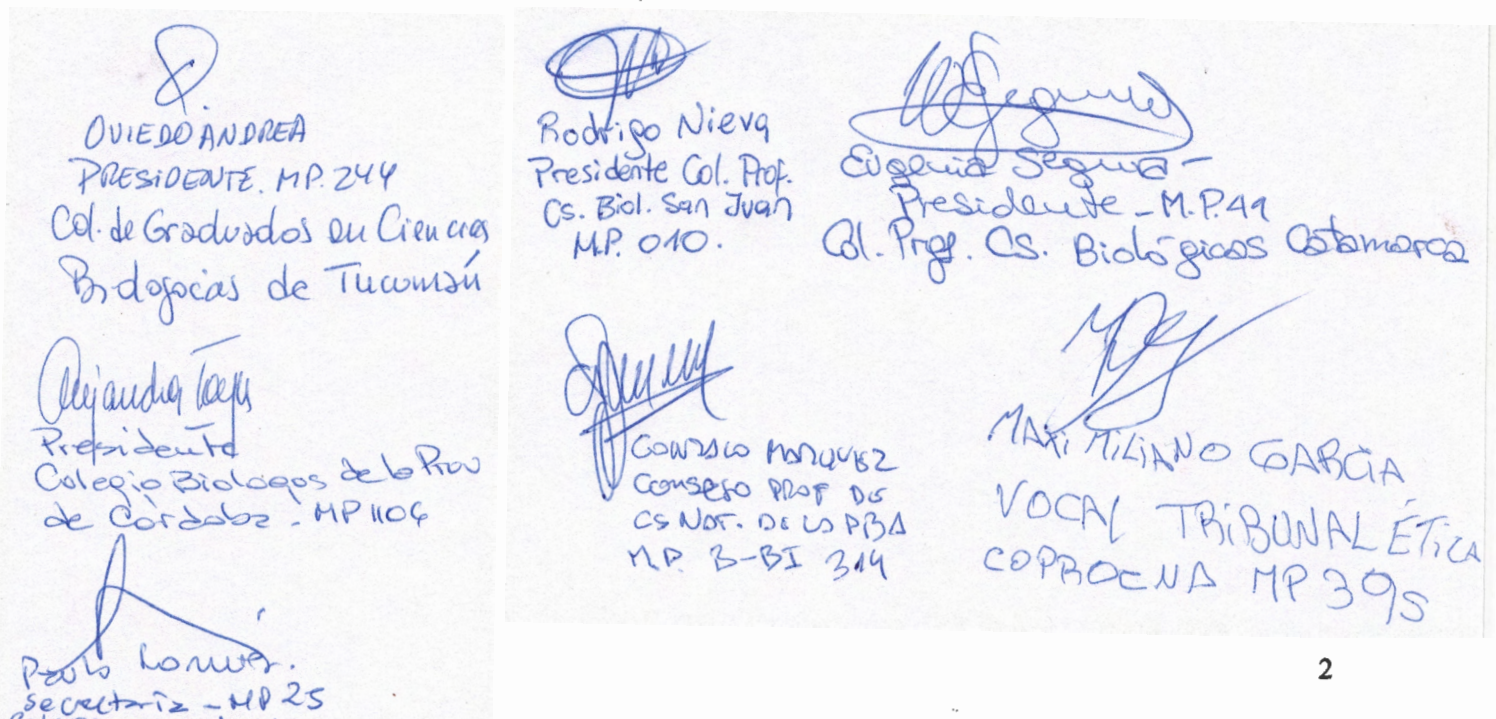 OVIEDO ANDREA
PRESIDENTE. MP. 244
Col. de Graduados en Ciencias
Biologicas de Tucumán
Alejandra
Presidente
Colegio Biologos de la Prov
de Córdoba - MP 1106
Paula
secretaria - MP 25
Rodrigo Nieva
Presidente Col. Prof.
Cs. Biol. San Juan
M.P. 010.
Segura
Eugenia Segura -
Presidente - M.P. 41
Col. Prof. Cs. Biológicas Catamarca
GONZALO MARQUEZ
CONSEJO PROF DE
CS NAT. DE LA PBA
M.P. B-BI 314
MAXIMILIANO GARCIA
VOCAL TRIBUNAL ÉTICA
COPROCNA MP 395
2